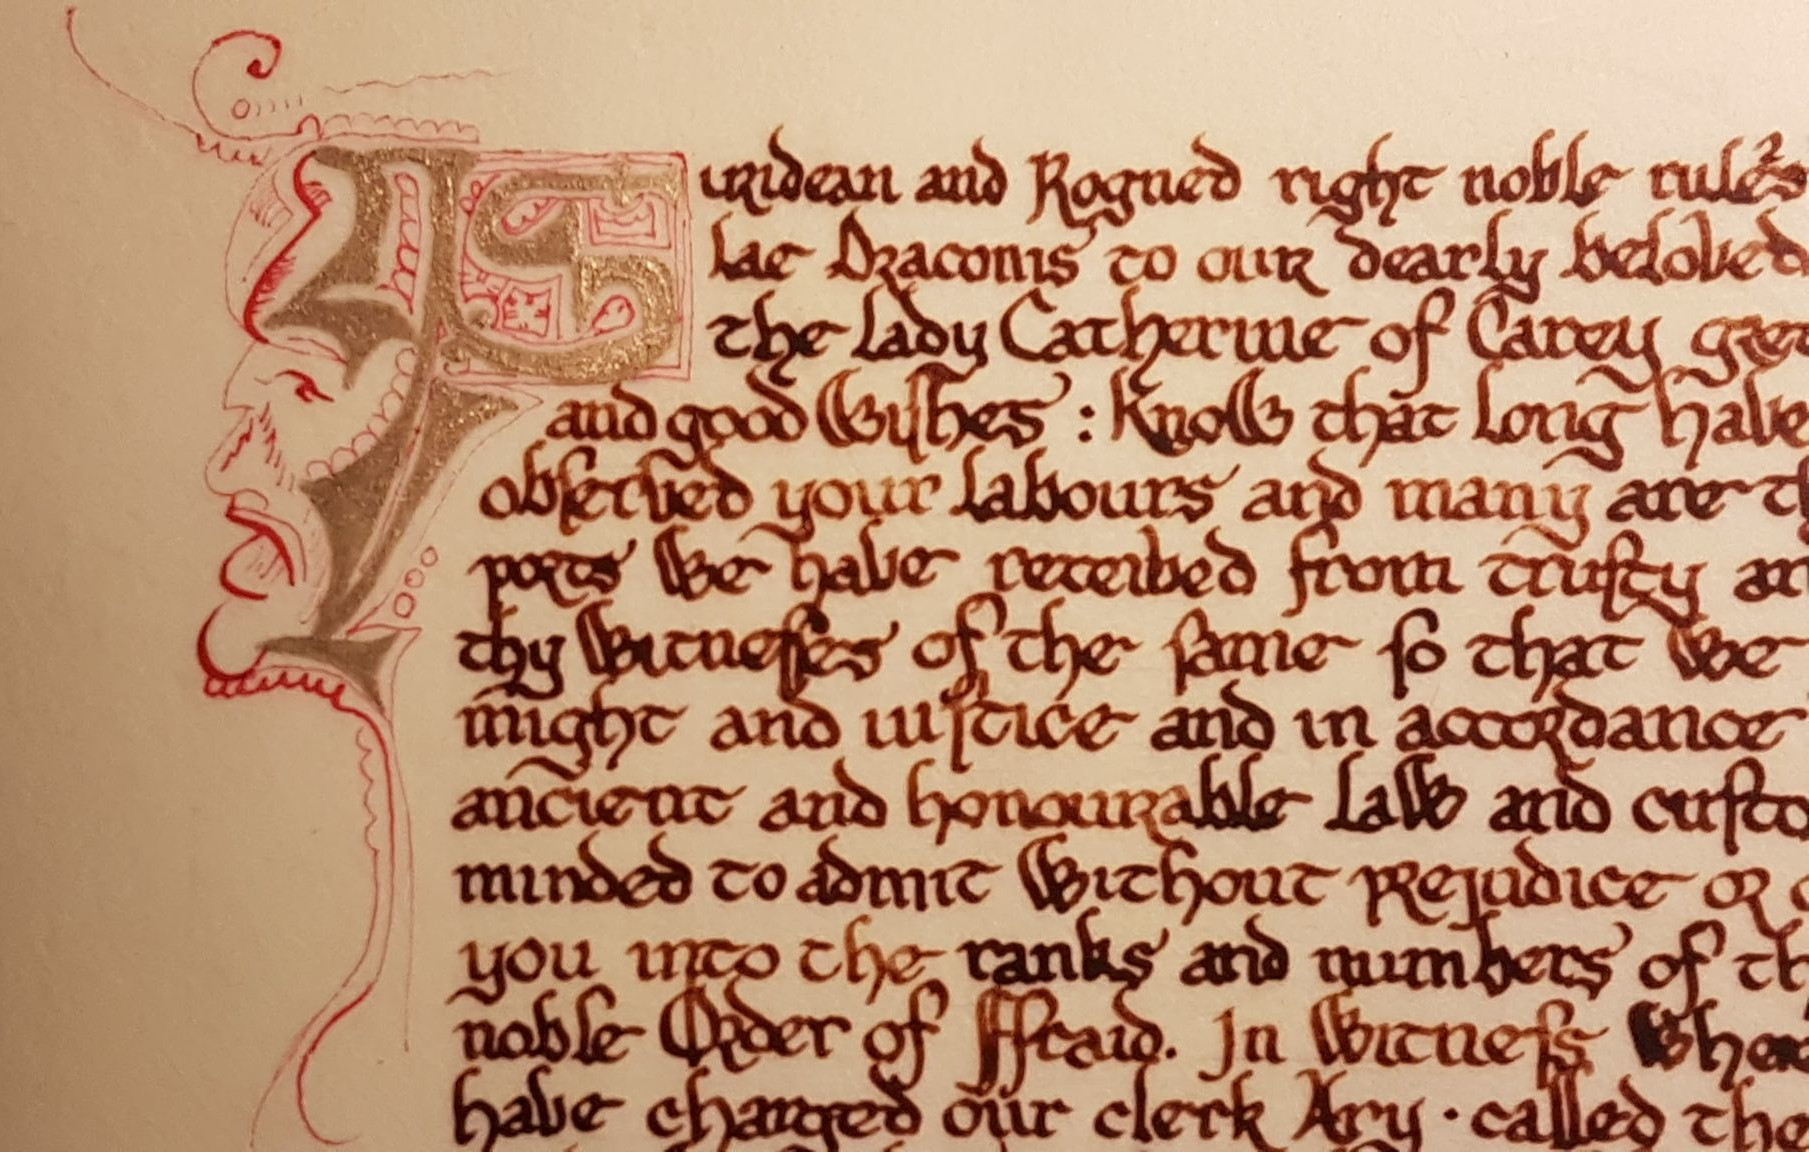 Yuridean and Rogned right noble rulers
lac Draconis to our dearly beloved
the lady Catherine of Carey gree
and good Wishes : Know that long have
obserued your labours and many are th
ports We have receiued from trusty an
thy Witnesses of the same so that We
might and iustice and in accordance
ancient and honourable LaW and custo
minded to admit Without prejudice or
you into the ranks and numbers of th
noble Order of Ffraid. In Witness Wher
have charged our clerk Ary · called the